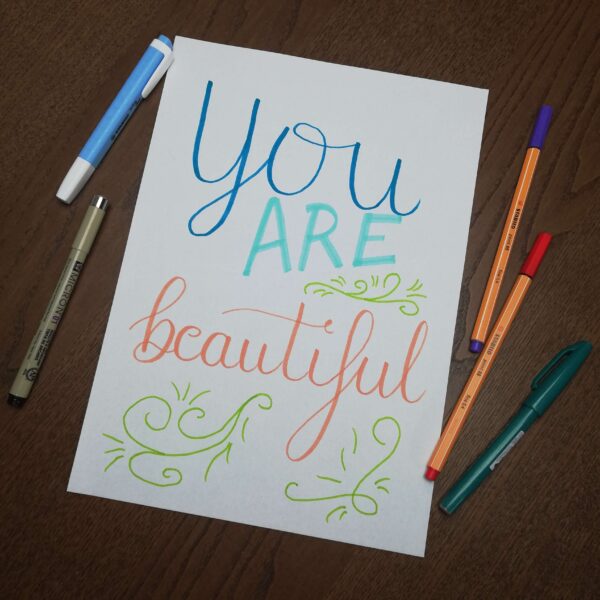 you
ARE
beautiful
MICRON
STABILO
STABILO